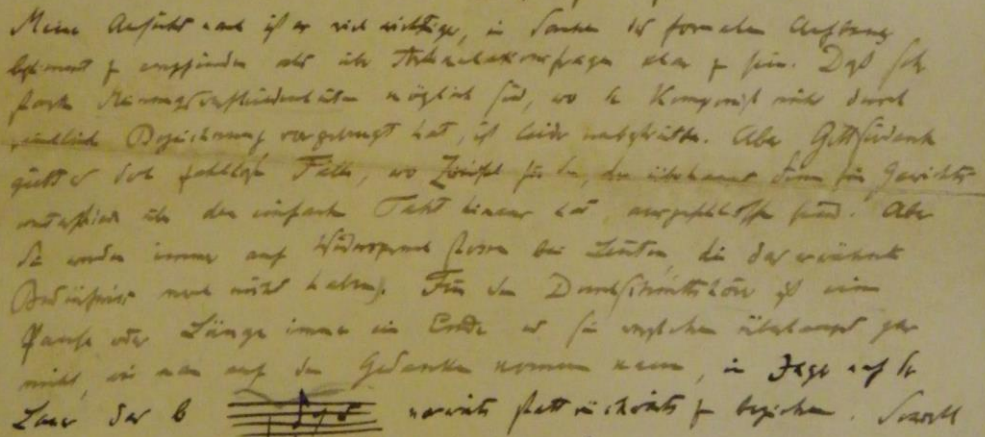 Meine Ansicht nach ist es viel wichtiger, im Sinne der formalen Auftang
bestimmt zu empfinden als über Artikulationsfragen klar zu sein. Daß sehr
starke Meinungsverschiedenheiten möglich sind, wo der Komponist nicht durch
Bezeichnung vorgebeugt hat, ist leider unbestritten. Aber Gottseidank
giebt es doch zahllose Fälle, wo Zweifel für den, der überhaupt Sinn für Gewichts
unterschiede über den einfachen Takt hinaus hat, ausgeschlossen sind. Aber
Sie werden immer auf Widerspruch stossen bei Leuten, die das erwähnte
Bedürfnis noch nicht haben. Für den Durchschnittshörer ist eine
Pause oder Länge immer ein Ende und sie begreifen überhaupt gar
nicht, wie man auf den Gedanken kommen kann, in Fuge auf der
das b vorwärts statt rückwärts zu beziehen. Sowohl